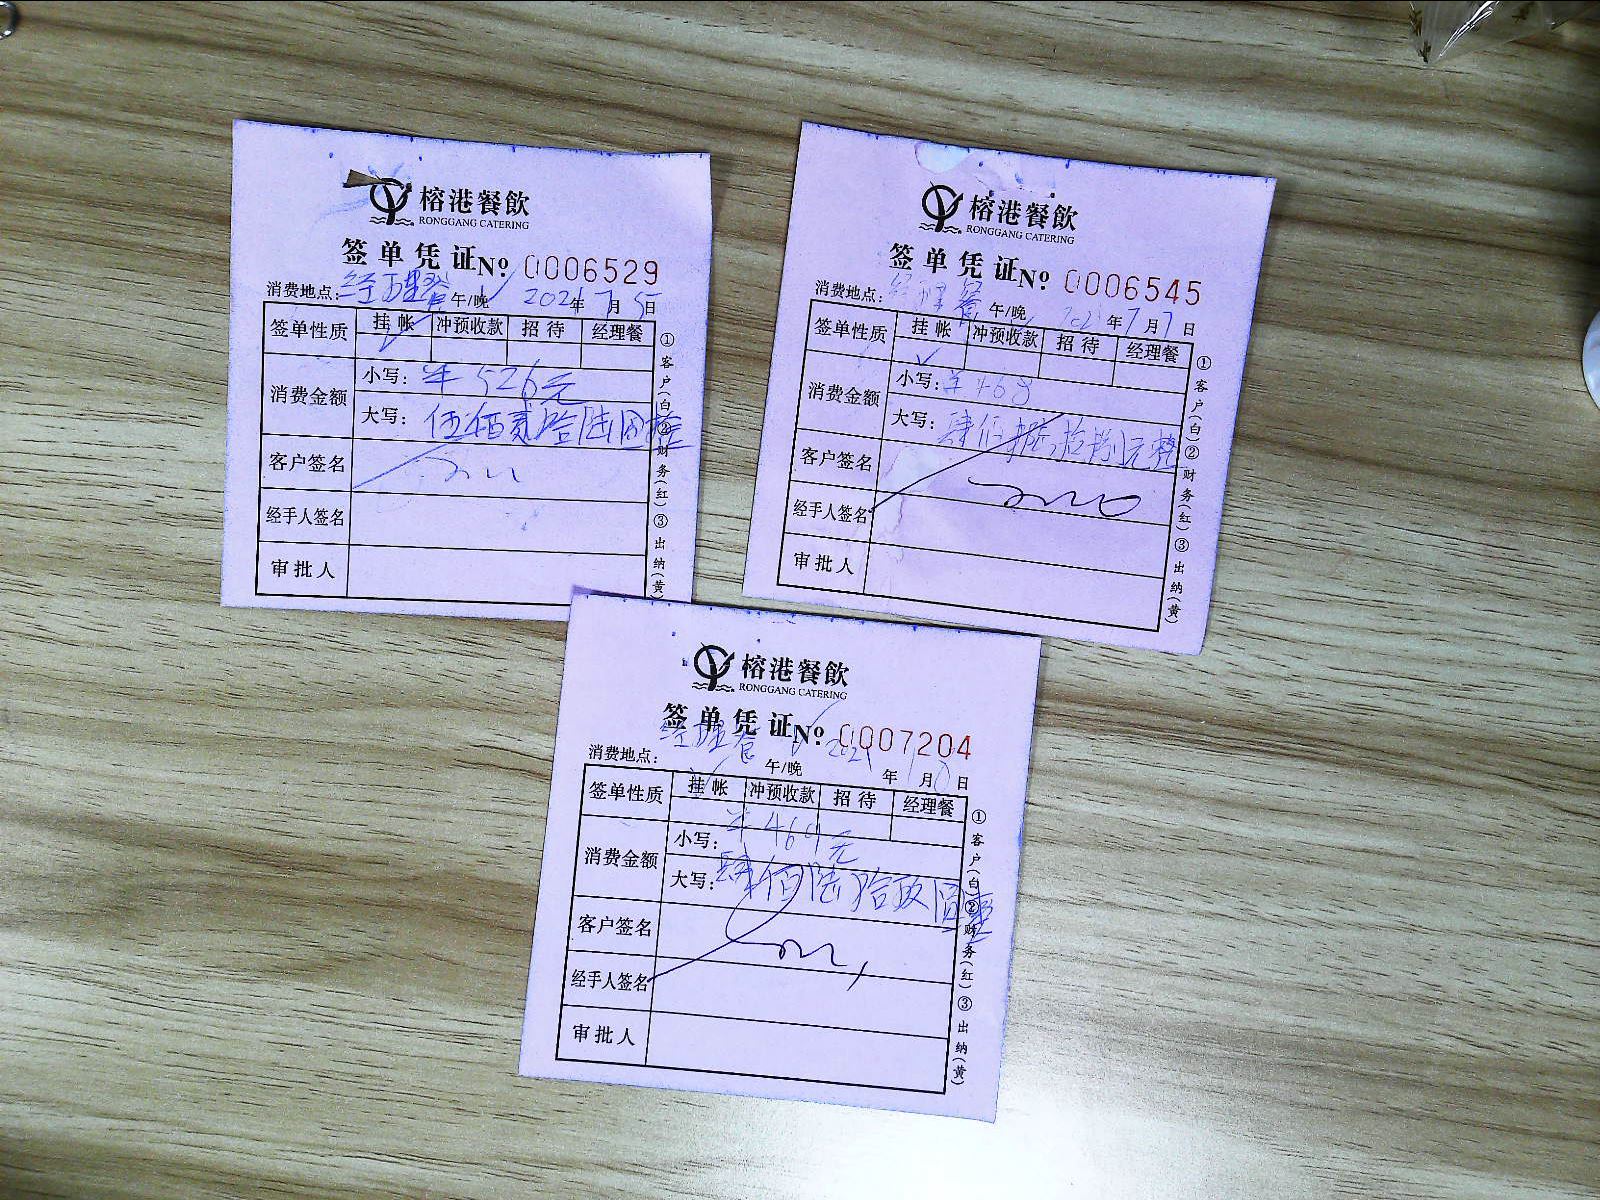 榕港餐飲
RONGGANG CATERING
签单凭证 No. 0006529
消费地点: 经理餐 午/晚 2021年7月5日
签单性质 挂帐 冲预收款 招待 经理餐
消费金额 小写: 526元
大写: 伍佰贰拾陆圆整
客户签名
经手人签名
审批人
①客户(白)②财务(红)③出纳(黄)
榕港餐飲
RONGGANG CATERING
签单凭证 No. 0006545
消费地点: 经理餐 午/晚 2021年7月7日
签单性质 挂帐 冲预收款 招待 经理餐
消费金额 小写: 468
大写: 肆佰陆拾捌元整
客户签名
经手人签名
审批人
①客户(白)②财务(红)③出纳(黄)
榕港餐飲
RONGGANG CATERING
签单凭证 No. 0007204
消费地点: 经理餐 午/晚 2021年 月 日
签单性质 挂帐 冲预收款 招待 经理餐
消费金额 小写: 469元
大写: 肆佰陆拾玖圆整
客户签名
经手人签名
审批人
①客户(白)②财务(红)③出纳(黄)